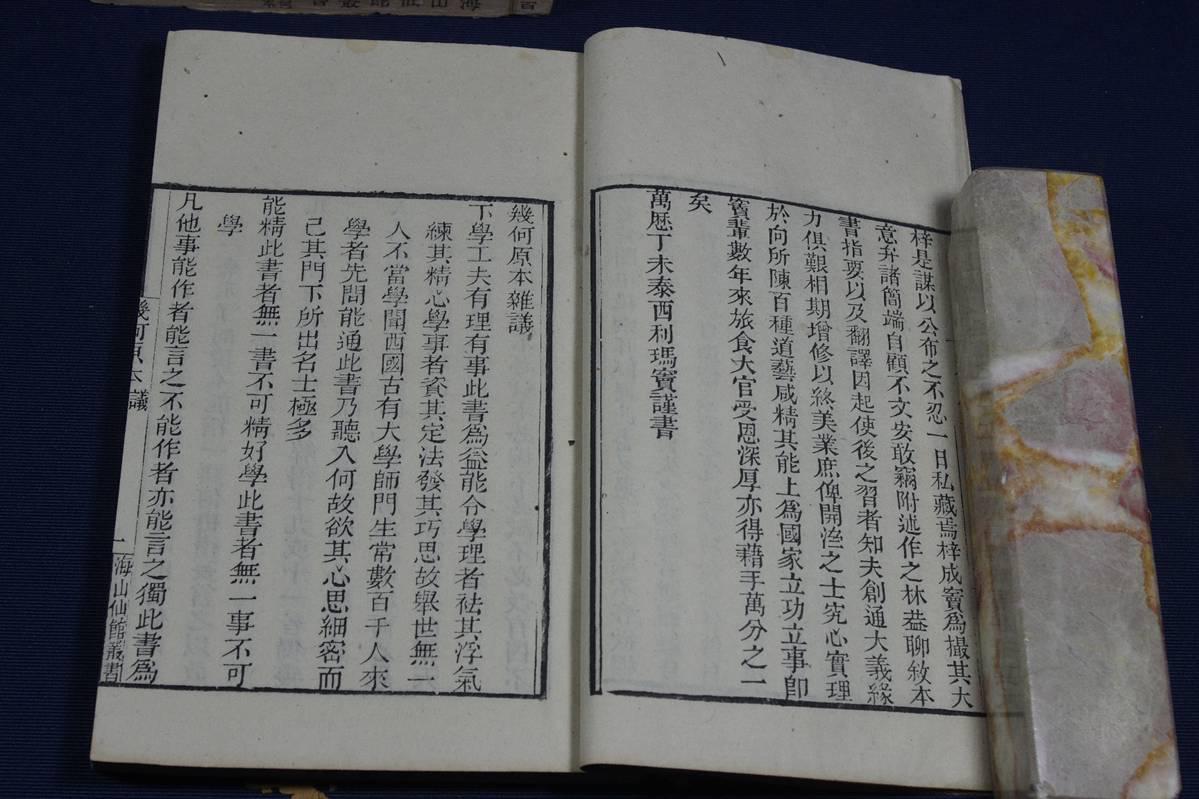 梓是謀以公布之不忍一日私藏焉梓成竇為撮其大
意弁諸簡端自顧不文安敢竊附述作之林葢聊敘本
書指要以及翻譯因起使後之習者知夫創通大義緣
力俱艱相期增修以終美業庶俾開濟之士究心實理
於向所陳百種道藝咸精其能上爲國家立功立事卽
竇輩數年來旅食大官受恩深厚亦得藉手萬分之一
矣
萬歷丁未泰西利瑪竇謹書
幾何原本雜議
下學工夫有理有事此書爲益能令學理者祛其浮氣
練其精心學事者資其定法發其巧思故舉世無一
人不當學聞西國古有大學師門生常數百千人來
學者先問能通此書乃聽入何故欲其心思細密而
己其門下所出名士極多
能精此書者無一書不可精好學此書者無一事不可
學
凡他事能作者能言之不能作者亦能言之獨此書爲
幾何原本議
一
海山仙館叢書